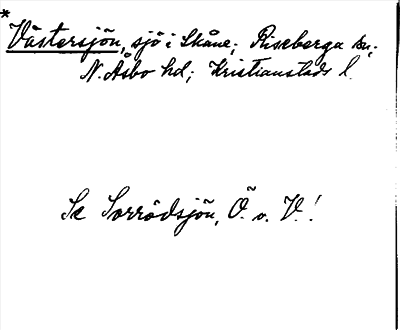 * Västersjön, sjö i Skåne; Riseberga sn;
N. Åsbo hd; Kristianstads l.
Se Sorrödsjön, Ö. o. V.!